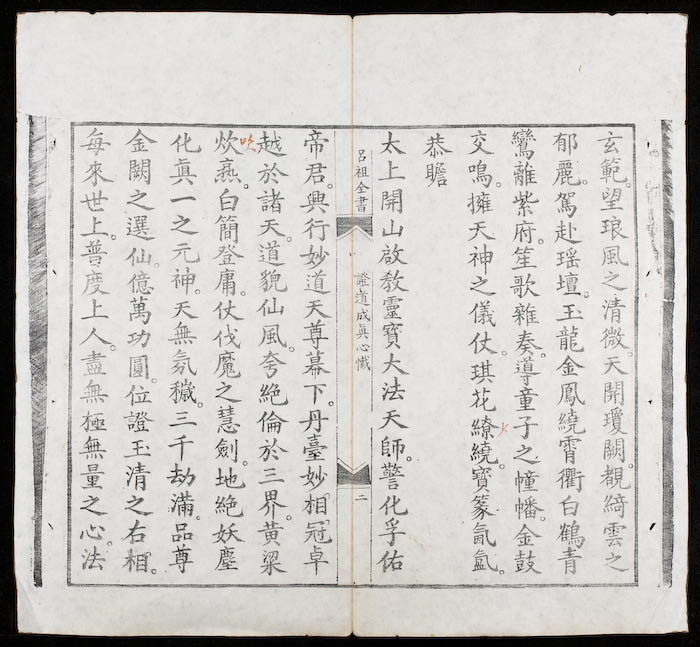 玄範。望琅風之清微。天開瓊闕。覩綺雲之
郁麗。駕赴瑤壇。玉龍金鳳繞霄衢白鶴青
鸞離紫府。笙歌雜奏。導童子之幢幡。金鼓
交鳴。擁天神之儀仗。琪花繚繞。寶篆氤氳。
恭瞻
太上開山啟教靈寶大法天師。警化孚佑
呂祖全書
證道成眞心懺
二
帝君。興行妙道天尊幕下。丹臺妙相。冠卓
越於諸天。道貌仙風。夸絕倫於三界。黃粱
吹
炊熟。白簡登庸。仗伐魔之慧劍。地絕妖塵
化眞一之元神。天無氛穢。三千劫滿。品尊
金闕之選仙。億萬功圓。位證玉清之右相。
每來世上。普度上人。盡無極無量之心。法